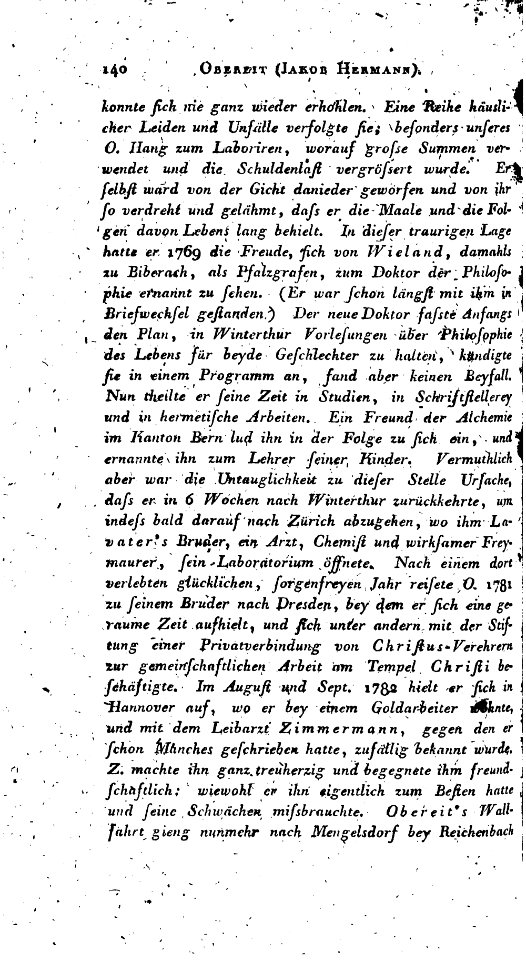 140 OBEREIT (JAKOB HERMANN).
konnte ſich nie ganz wieder erhohlen. Eine Reihe häusli-
cher Leiden und Unfälle verfolgte ſie; beſonders unſeres
O. Hang zum Laboriren, worauf groſse Summen ver-
wendet und die Schuldenlaſt vergröſsert wurde. Er
ſelbſt ward von der Gicht danieder geworfen und von ihr
ſo verdreht und gelähmt, daſs er die Maale und die Fol-
gen davon Lebens lang behielt. In dieſer traurigen Lage
hatte er 1769 die Freude, ſich von Wieland, damahls
zu Biberach, als Pfalzgrafen, zum Doktor der Philoſo-
phie ernannt zu ſehen. (Er war ſchon längſt mit ihm in
Briefwechſel geſtanden.) Der neue Doktor faſste Anfangs
den Plan, in Winterthur Vorleſungen über Philoſophie
des Lebens für beyde Geſchlechter zu halten, kündigte
ſie in einem Programm an, fand aber keinen Beyfall.
Nun theilte er ſeine Zeit in Studien, in Schriftſtellerey
und in hermetiſche Arbeiten. Ein Freund der Alchemie
im Kanton Bern lud ihn in der Folge zu ſich ein, und
ernannte ihn zum Lehrer ſeiner Kinder. Vermuthlich
aber war die Untauglichkeit zu dieſer Stelle Urſache,
daſs er in 6 Wochen nach Winterthur zurückkehrte, um
indeſs bald darauf nach Zürich abzugehen, wo ihm La-
vater's Bruder, ein Arzt, Chemiſt und wirkſamer Frey-
maurer, ſein Laboratorium öffnete. Nach einem dort
verlebten glücklichen, ſorgenfreyen Jahr reiſete O. 1781
zu ſeinem Bruder nach Dresden, bey dem er ſich eine ge-
raume Zeit aufhielt, und ſich unter andern mit der Stif-
tung einer Privatverbindung von Chriſtus-Verehrern
zur gemeinſchaftlichen Arbeit am Tempel Chriſti be-
ſchäftigte. Im Auguſt und Sept. 1782 hielt er ſich in
Hannover auf, wo er bey einem Goldarbeiter wohnte,
und mit dem Leibarzt Zimmermann, gegen den er
ſchon Manches geſchrieben hatte, zufällig bekannt wurde.
Z. machte ihn ganz treuherzig und begegnete ihm freund-
ſchaftlich: wiewohl er ihn eigentlich zum Beſten hatte
und ſeine Schwächen miſsbrauchte. Obereit's Wall-
fahrt gieng nunmehr nach Mengelsdorf bey Reichenbach